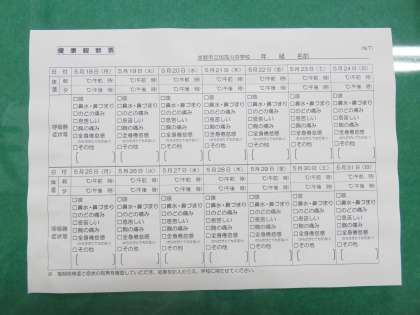 健康観察表
年 組 名前
日付 5月18日(月) 5月19日(火) 5月20日(水) 5月21日(木) 5月22日(金) 5月23日(土) 5月24日(日)
℃/午前 時 ℃/午前 時 ℃/午前 時 ℃/午前 時 ℃/午前 時 ℃/午前 時 ℃/午前 時
℃/午後 時 ℃/午後 時 ℃/午後 時 ℃/午後 時 ℃/午後 時 ℃/午後 時 ℃/午後 時
□咳 □咳 □咳 □咳 □咳 □咳 □咳
□鼻水・鼻づまり □鼻水・鼻づまり □鼻水・鼻づまり □鼻水・鼻づまり □鼻水・鼻づまり □鼻水・鼻づまり □鼻水・鼻づまり
□のどの痛み □のどの痛み □のどの痛み □のどの痛み □のどの痛み □のどの痛み □のどの痛み
呼吸器症状等
□息苦しい □息苦しい □息苦しい □息苦しい □息苦しい □息苦しい □息苦しい
□胸の痛み □胸の痛み □胸の痛み □胸の痛み □胸の痛み □胸の痛み □胸の痛み
□全身倦怠感 □全身倦怠感 □全身倦怠感 □全身倦怠感 □全身倦怠感 □全身倦怠感 □全身倦怠感
□その他 □その他 □その他 □その他 □その他 □その他 □その他
日付 5月25日(月) 5月26日(火) 5月27日(水) 5月28日(木) 5月29日(金) 5月30日(土) 5月31日(日)
℃/午前 時 ℃/午前 時 ℃/午前 時 ℃/午前 時 ℃/午前 時 ℃/午前 時 ℃/午前 時
℃/午後 時 ℃/午後 時 ℃/午後 時 ℃/午後 時 ℃/午後 時 ℃/午後 時 ℃/午後 時
□咳 □咳 □咳 □咳 □咳 □咳 □咳
□鼻水・鼻づまり □鼻水・鼻づまり □鼻水・鼻づまり □鼻水・鼻づまり □鼻水・鼻づまり □鼻水・鼻づまり □鼻水・鼻づまり
□のどの痛み □のどの痛み □のどの痛み □のどの痛み □のどの痛み □のどの痛み □のどの痛み
呼吸器症状等
□息苦しい □息苦しい □息苦しい □息苦しい □息苦しい □息苦しい □息苦しい
□胸の痛み □胸の痛み □胸の痛み □胸の痛み □胸の痛み □胸の痛み □胸の痛み
□全身倦怠感 □全身倦怠感 □全身倦怠感 □全身倦怠感 □全身倦怠感 □全身倦怠感 □全身倦怠感
□その他 □その他 □その他 □その他 □その他 □その他 □その他